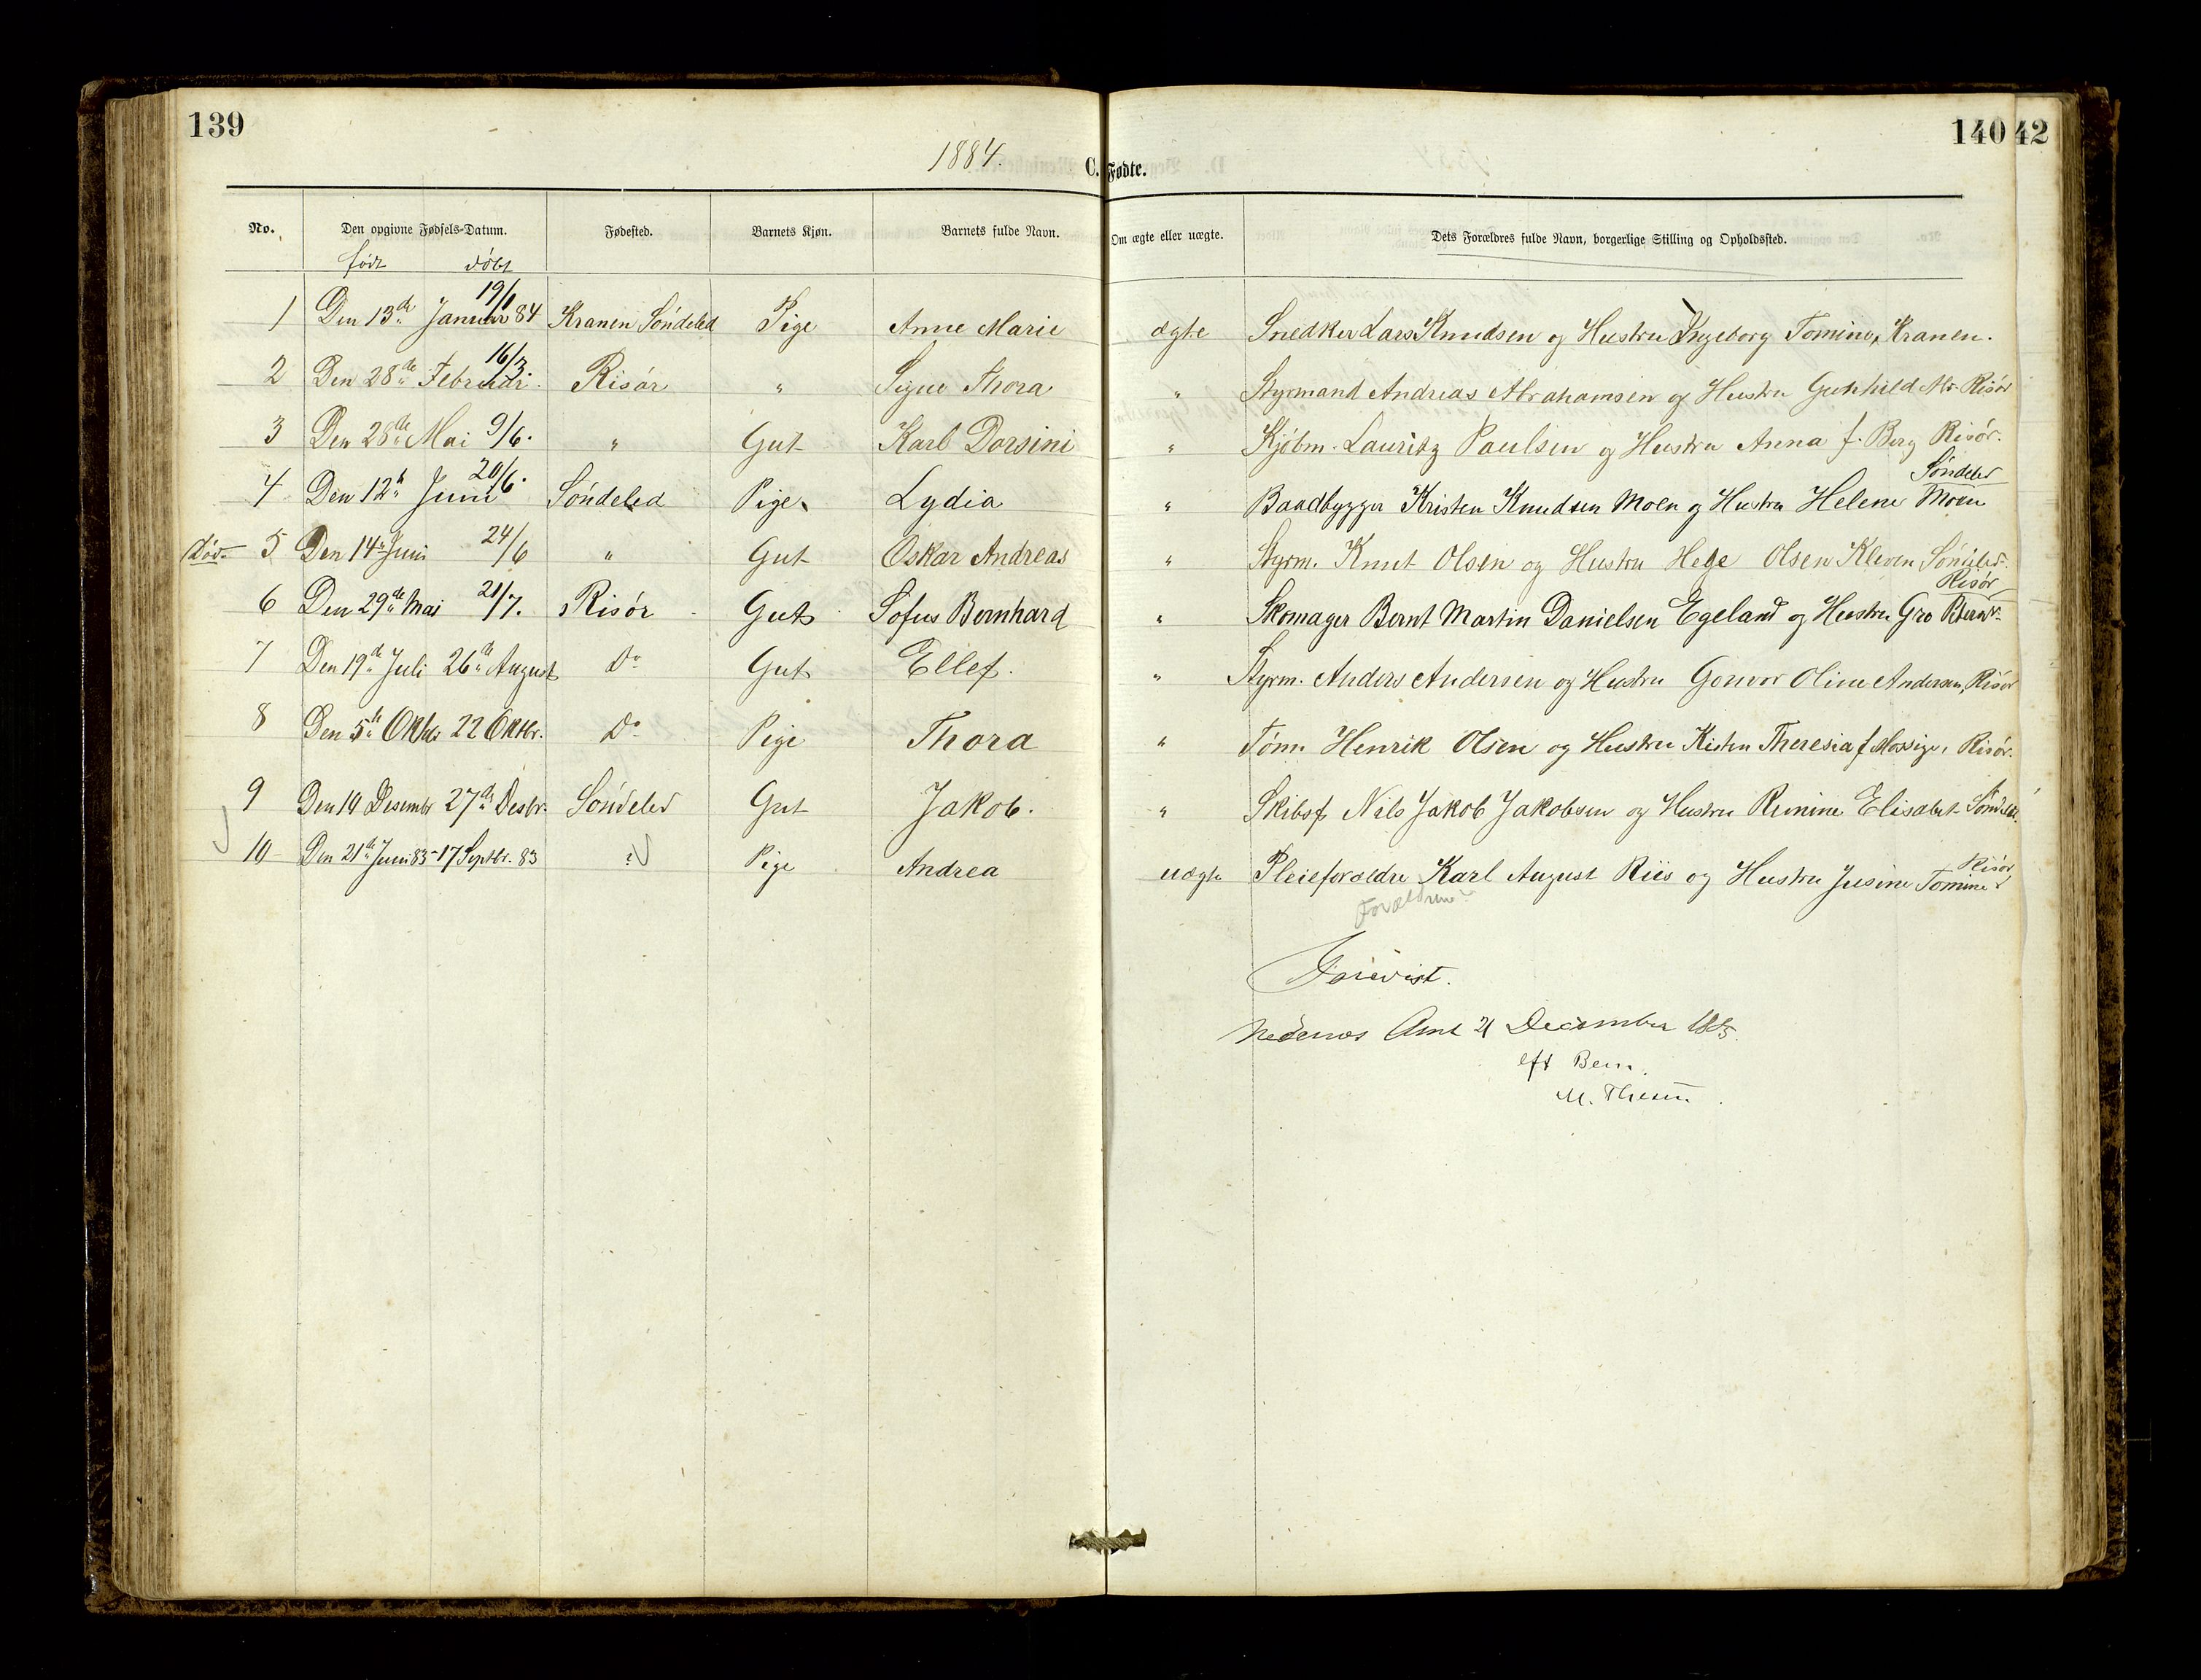 139
140 42
1884.
C. Fødte.
No. Den opgivne Fødsels-Datum. Fødested. Barnets Kjøn. Barnets fulde Navn. Om ægte eller uægte. Dets Forældres fulde Navn, borgerlige Stilling og Opholdssted.
født døbt
1 Den 13de Januar 84 19/1 Kranen Söndeled Pige Anne Marie ægte Snedker Lars Knudsen og Hustru Ingeborg Tomine, Kranen.
2 Den 28de Februar 16/3. Risör " Signe Thora " Styrmand Andreas Abrahamsen og Hustru Gunhild M. Risör
3 Den 28de Mai 9/6. " Gut Karl Dorsini " Kjöbm. Lauritz Paulsen og Hustru Anna f. Berg Risör.
4 Den 12te Juni 20/6. Söndeled Pige Lydia " Baadbygger Kristen Knudsen Moen og Hustru Helene Moen Söndeled
död 5 Den 14de Juni 24/6 " Gut Oskar Andreas " Styrm. Knut Olsen og Hustru Hege Olsen Kleven Söndeled.
6 Den 29de Mai 21/7. Risör Gut Sofus Bernhard " Skomager Bernt Martin Danielsen Egeland og Hustru Gro Risör
7 Den 19de Juli 26de August Do Gut Ellef. " Styrm. Anders Andersen og Hustru Gonvor Oline Andersen, Risör
8 Den 5te Oktbr 22 Oktbr. Do Pige Thora " Tömr Henrik Olsen og Hustru Kisten Theresia f Mossige, Risör.
9 Den 10 Desembr 27de Desbr. Söndeled Gut Jakob. " Skibsf Nils Jakob Jakobsen og Hustru Rumine Elisabet Söndeled.
10 Den 21de Juni 83 - 17 Septbr. 83 " Pige Andrea uægte Pleieforældre Karl August Riis og Hustru Jusine Tomine Risör
Forældrene
Forevist.
Nedenes Amt 21 December 1885.
eft Bem.
M. Thesen